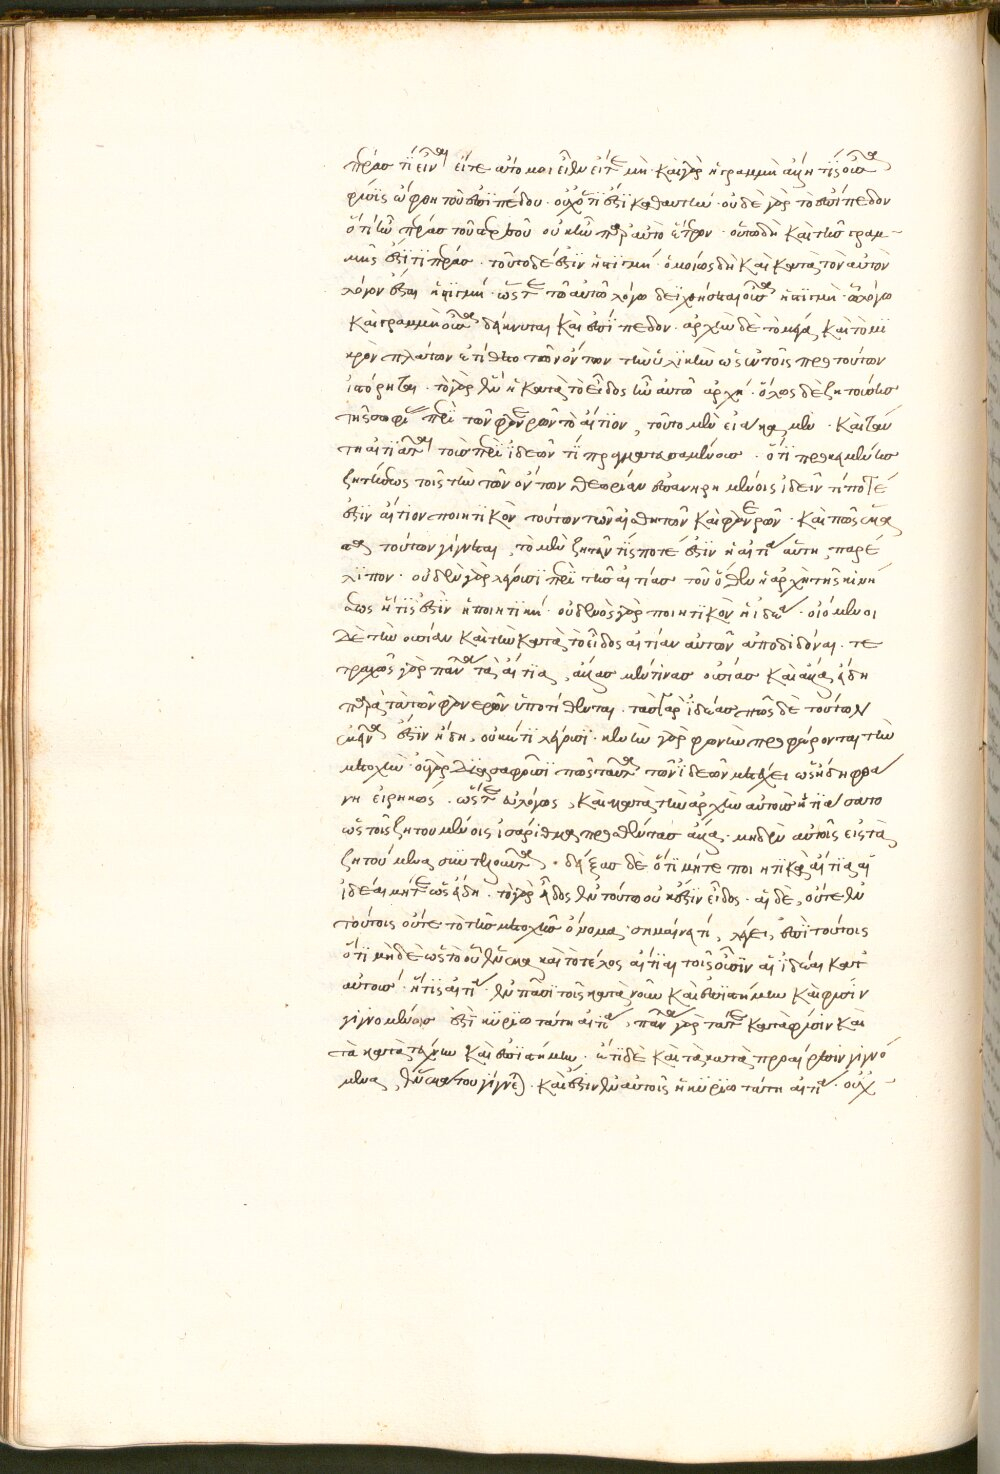 πέρας τί εἶναι εἴτε ἄτομοι εἶεν εἴτε μή. καὶ γὰρ ἡ γραμμὴ ἄλλη τίς οὖσα
φύσις ὑφ' ἣν τοῦ ἐπιπέδου. οὐχ ὅτι ἐστὶ καθ' αὑτήν. οὐδὲ γὰρ τὸ ἐπίπεδον
ὅτι ἦν πέρας τοῦ στερεοῦ οὐκ ἦν παρ' αὐτὸ ἕτερον. οὕτω δὴ καὶ τῆς γραμ-
μῆς ἐστί τι πέρας. τοῦτο δέ ἐστιν ἡ στιγμή. ὁμοίως δὴ καὶ κατὰ τὸν αὐτὸν
λόγον ἔσται ἡ στιγμή. ὥστε τῷ αὐτῷ λόγῳ δειχθήσεται οὖσα ἡ στιγμὴ ᾧ λόγῳ
καὶ γραμμὴ οὖσα δείκνυται καὶ ἐπίπεδον. ἀρχὴν δὲ τὸ μέγα καὶ τὸ μι
κρὸν πλάτων ἐτίθετο τῶν ὄντων τὴν ὑλικὴν ὡς ἐν τοῖς πρὸ τούτων
ἱστόρηται. τὸ γὰρ ἓν ἡ κατὰ τὸ εἶδος ἦν αὐτῷ ἀρχή. ὅλως δὲ ζητούσης
τῆς σοφίας περὶ τῶν φανερῶν τὸ αἴτιον, τοῦτο μὲν εἰάκαμεν. καὶ ταύ
τη αἰτιᾶται τοὺς περὶ ἰδεῶν τι πραγματευσαμένους. ὅτι προκειμένης
ζητήσεως τοῖς τὴν τῶν ὄντων θεωρίαν ἐπανῃρημένοις ἰδεῖν τί ποτέ
ἐστιν αἴτιον ποιητικὸν τούτων τῶν αἰσθητῶν καὶ φανερῶν. καὶ πῶς ἕκα
στα τούτων γίγνεται, τὸ μὲν ζητεῖν τίς ποτέ ἐστιν ἡ αἰτία αὕτη, παρέ
λιπον. οὐδὲν γὰρ λέγουσι περὶ τῆς αἰτίας τοῦ ὅθεν ἡ ἀρχὴ τῆς κινή
σεως ἥτις ἐστὶν ἡ ποιητική. οὐδενὸς γὰρ ποιητικὸν ἡ ἰδέα. οἰόμενοι
δὲ τὴν οὐσίαν καὶ τὴν κατὰ τὸ εἶδος αἰτίαν αὐτῶν ἀποδιδόναι. τε
τραχῶς γὰρ πάντα τὰ αἴτια, ἄλλας μέν τινας οὐσίας καὶ ἄλλα εἴδη
παρὰ τὰ τῶν φανερῶν ὑποτίθενται. τὰς γὰρ ἰδέας πῶς δὲ τούτων
ἐκεῖνά ἐστιν εἴδη, οὐκέτι λέγουσι. κενὴν γὰρ φωνὴν προφέρονται τὴν
μετοχήν. οὐ γὰρ διασαφοῦσι πῶς ταῦτα τῶν ἰδεῶν μετέχει ὡς ἤδη φθά
νη εἰρηκώς. ὥστε εὐλόγως, καὶ κατὰ τὴν ἀρχὴν αὐτοὺς ᾐτιάσατο
ὡς τοῖς ζητουμένοις ἰσάριθμα προσθέντας ἄλλα. μηδὲν αὐτοῖς εἰς τὰ
ζητούμενα συντελοῦντα. δείξας δὲ ὅτι μήτε ποιητικὰ αἴτια αἱ
ἰδέαι μήτε ὡς εἴδη. τὸ γὰρ εἶδος ἐν τούτῳ οὗ ἐστιν εἶδος. αἱ δὲ, οὔτε ἐν
τούτοις οὔτε τὸ τῆς μετοχῆς ὄνομα σημαίνει τί, λέγει, ἐπὶ τούτοις
ὅτι μὴ δὲ ὡς τὸ οὗ ἕνεκα καὶ τὸ τέλος αἴτιαι τοῖς οὖσιν αἱ ἰδέαι κατ'
αὐτούς. ἥτις αἰτία. ἐν πᾶσι τοῖς κατὰ νοῦν καὶ ἐπιστήμην καὶ φύσιν
γιγνομένοις ἐστὶ κυριωτάτη αἰτία, πάντα γὰρ τά τε κατὰ φύσιν καὶ
τὰ κατὰ τέχνην καὶ ἐπιστήμην. ἔτι δὲ καὶ τὰ κατὰ προαίρεσιν γιγνό
μενα, ἕνεκά του γίγνεται. καὶ ἔστιν ἐν αὐτοῖς ἡ κυριωτάτη αἰτία. οὐχ